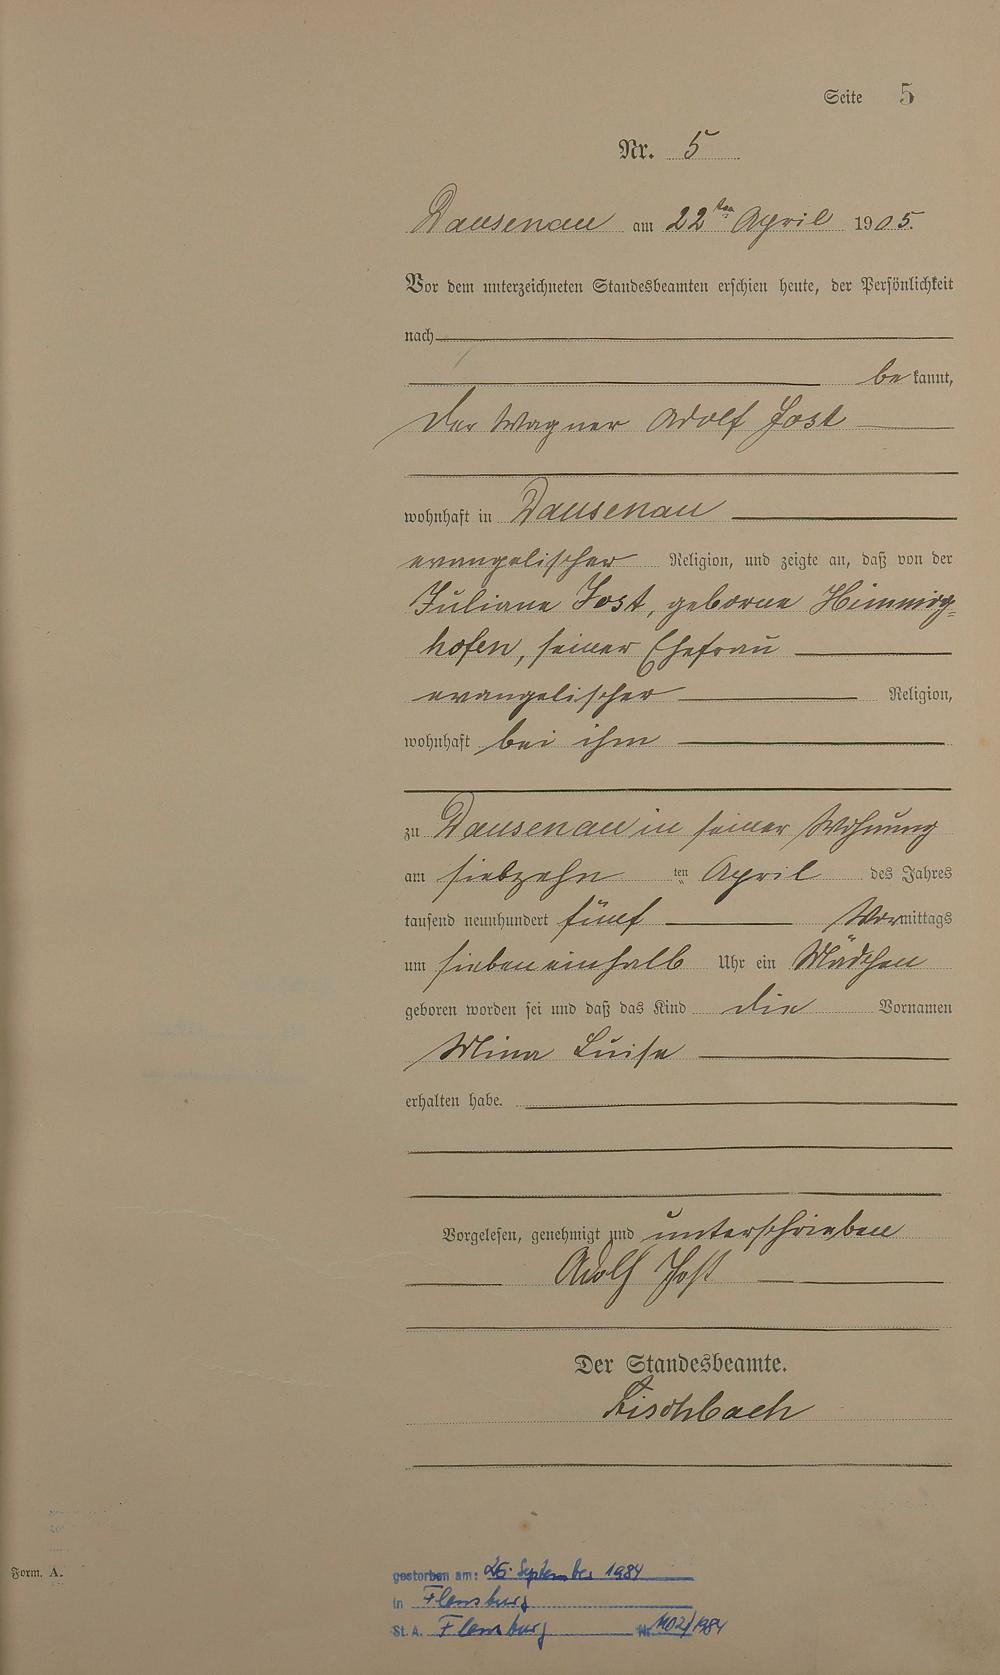 Seite 5
Nr. 5
Dausenau am 22ten April 1905.
Vor dem unterzeichneten Standesbeamten erschien heute, der Persönlichkeit
nach
bekannt,
der Wagner Adolf Jost
wohnhaft in Dausenau
evangelischer Religion, und zeigte an, daß von der
Juliane Jost, geborne Himmig=
hofen, seiner Ehefrau
evangelischer Religion,
wohnhaft bei ihm
zu Dausenau in seiner Wohnung
am siebzehn ten April des Jahres
tausend neunhundert fünf Vormittags
um sieben einhalb Uhr ein Mädchen
geboren worden sei und daß das Kind die Vornamen
Mina Luise
erhalten habe.
Vorgelesen, genehmigt und unterschrieben
Adolf Jost
Der Standesbeamte.
Form. A.
gestorben am: 26. September 1984
in Flensburg
St. A. Flensburg Nr. 1102/1984